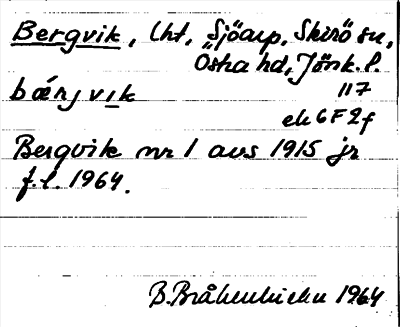 Bergvik, lht, Sjöarp, Skirö sn,
Östra hd, Jönk. l.
bǽrj vɪk 117
ek 6 F 2 f
Bergvik nr 1 avs 1915 jr
f.l. 1964.
B. 1964